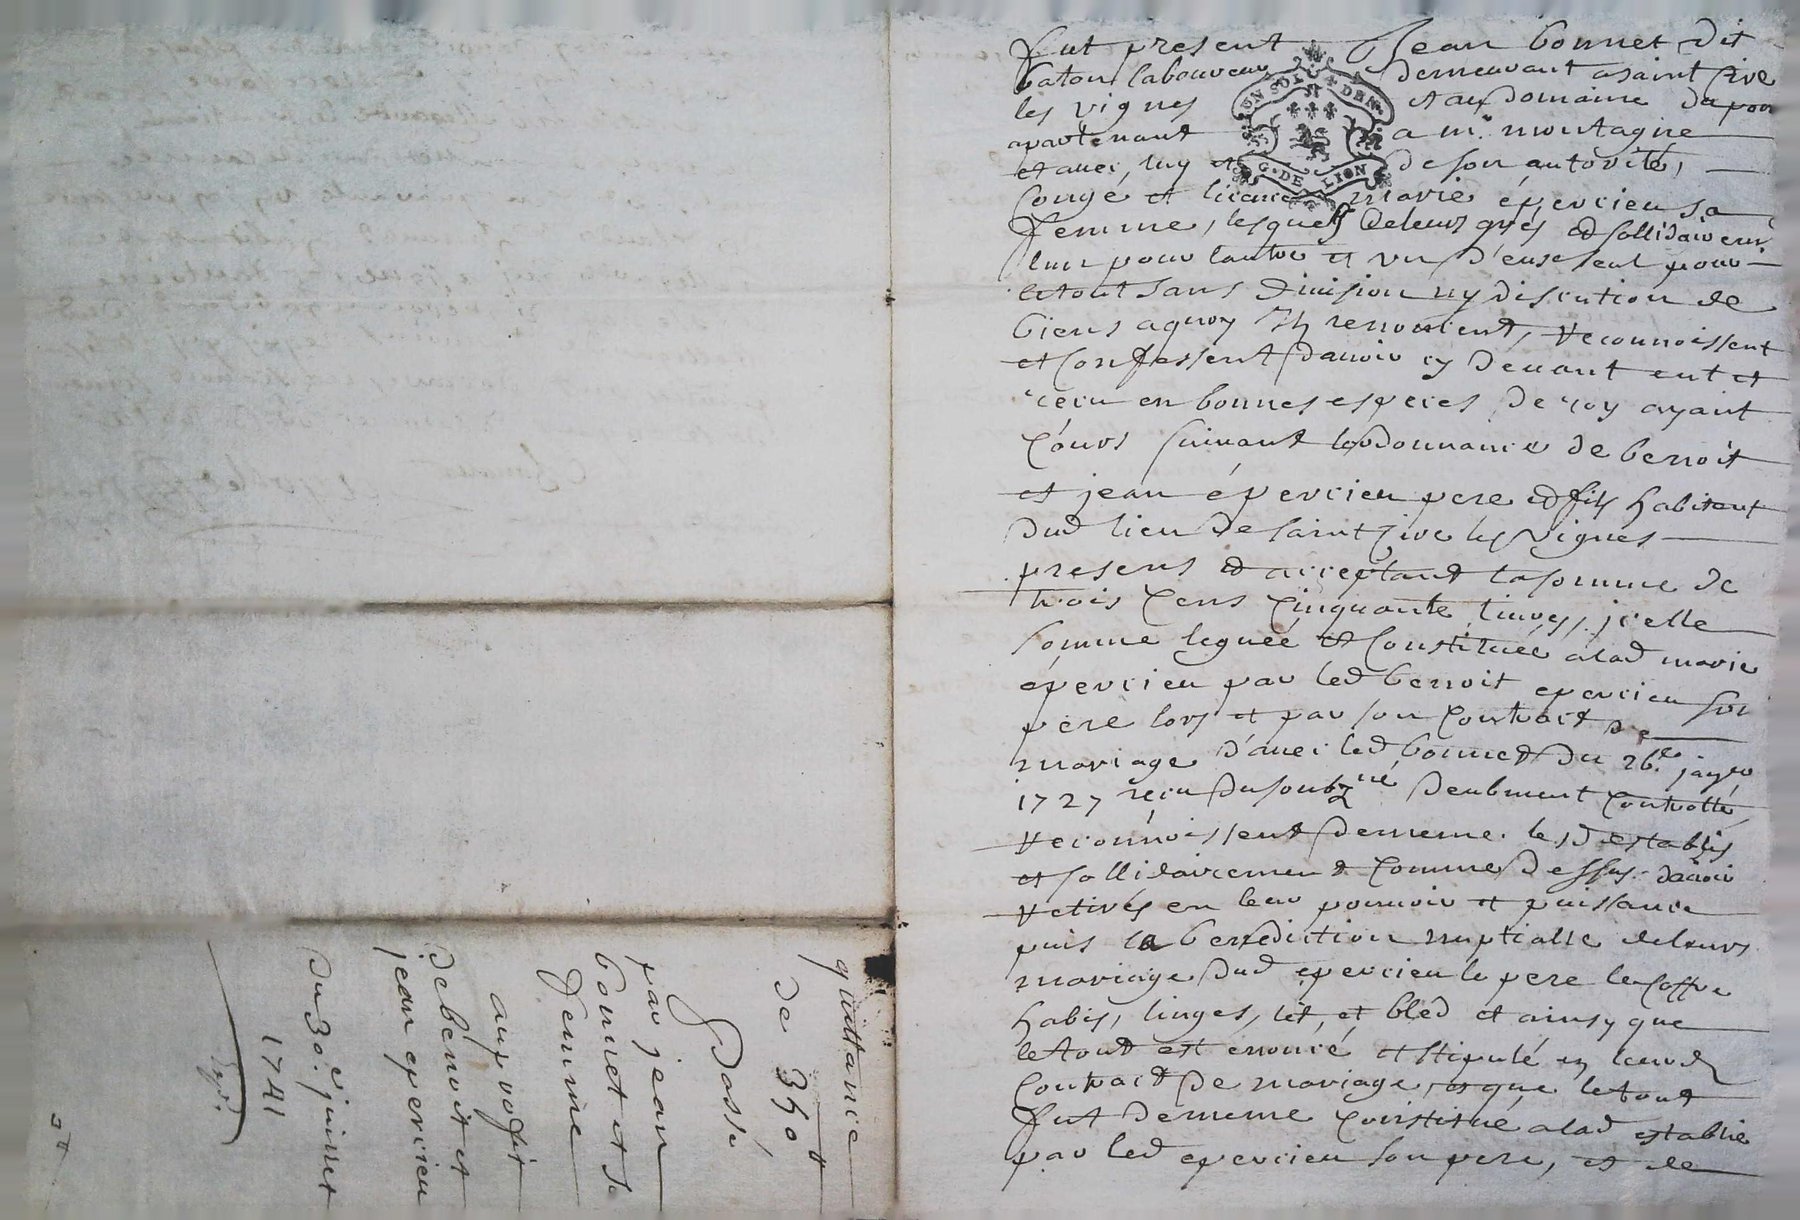 fut present Jean bonnet dit
baton laboureur demeurant a saint Cire
les vignes et au domaine du
apartenant a mr. montagne
et avec luy et de son autorité,
Conge et licance marie épercieu sa
femme, lesquels de leurs grés et sollidairemt.
lun pour lautre et un d'eux seul pour
le tout sans division ny discution de
biens a quoy ils renoncent, reconnoissent
et Confessent d'avoir cy devant eut et
recu en bonnes especes de roy ayant
Cours suivant lordonnance de benoit
et jean épercieu pere et fils habitent
dud lieu de saint Cire les vignes
presens et acceptant la somme de
trois Cens Cinquante livres, jcelle
somme leguée et Constituée a lad marie
épercieu par led benoit epercieu son
pere lors et par son Contract de
mariage d'avec led bonnet du 26.e janver
1727 recu du soubzné deubment Controllé,
reconnoissent de meme lesd establis
et sollidairement Comme dessus davoir
retirés en leur pouvoir et puissance
puis la benediction nuptialle de leurs
mariage dud epercieu le pere le coffre
habis, linges, lit, et bled et ainsy que
le tout est enoncé et stipulé en leurd
Contract de mariage, et que le tout
fut de meme Constitué a lad establie
par led epercieu son pere, et de
quittance
de 350 lt
passé
par jean
bonnet et sa
femme
au profit
de benoit et
jean epercieu
du 30.e juillet
1741